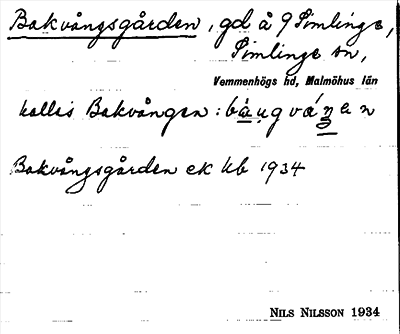 Bakvångsgården, gd å 9 Simlinge,
Simlinge sn,
Vemmenhögs hd, Malmöhus län
kallas Bakvången: bàu̯gváŋen
Bakvångsgården ek kb 1934
NILS NILSSON 1934